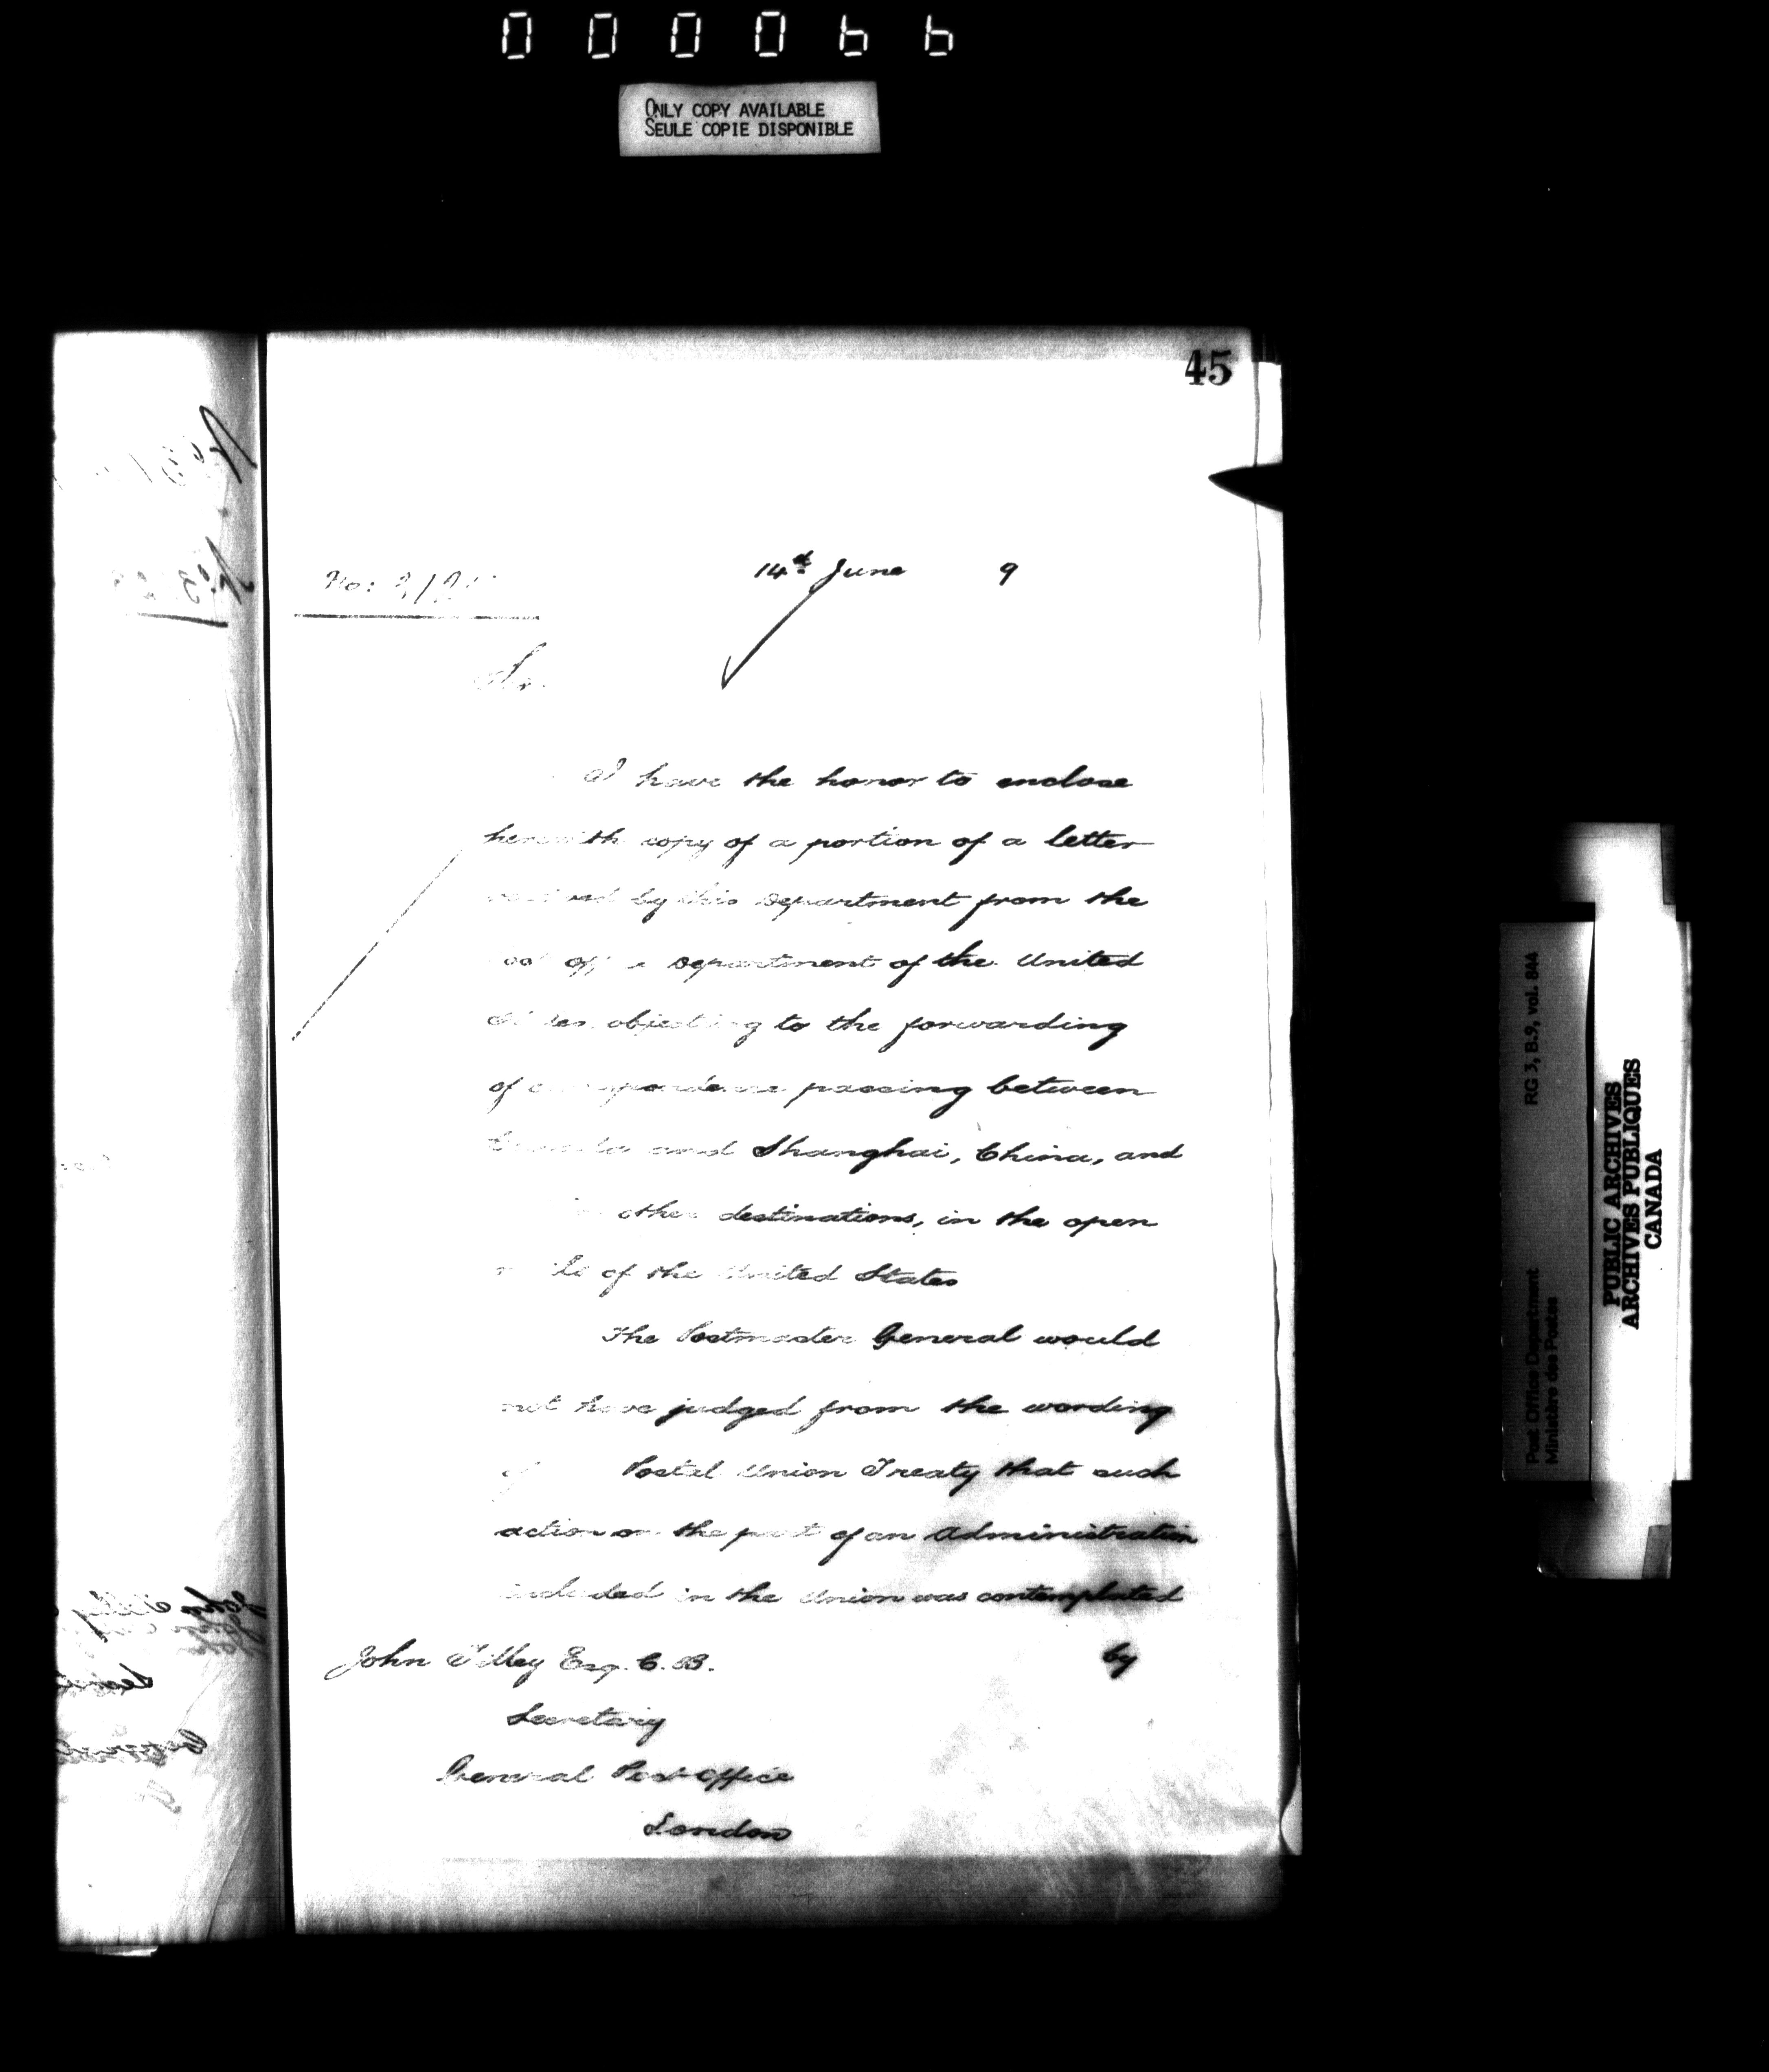 000066
ONLY COPY AVAILABLE
SEULE COPIE DISPONIBLE
45
14th June 9
No:
Sir
I have the honor to enclose
herewith copy of a portion of a letter
received by this Department from the
Post Office Department of the United
States objecting to the forwarding
of correspondence passing between
Canada and Shanghai, China, and
other destinations, in the open
mails of the United States
The Postmaster General would
not have judged from the wording
of Postal Union Treaty that such
action on the part of an Administration
included in the Union was contemplated
by
John Tilley Esq. C. B.
Secretary
General Post Office
London
RG 3, B.9, vol. 844
Post Office Department
Ministère des Postes
PUBLIC ARCHIVES
ARCHIVES PUBLIQUES
CANADA